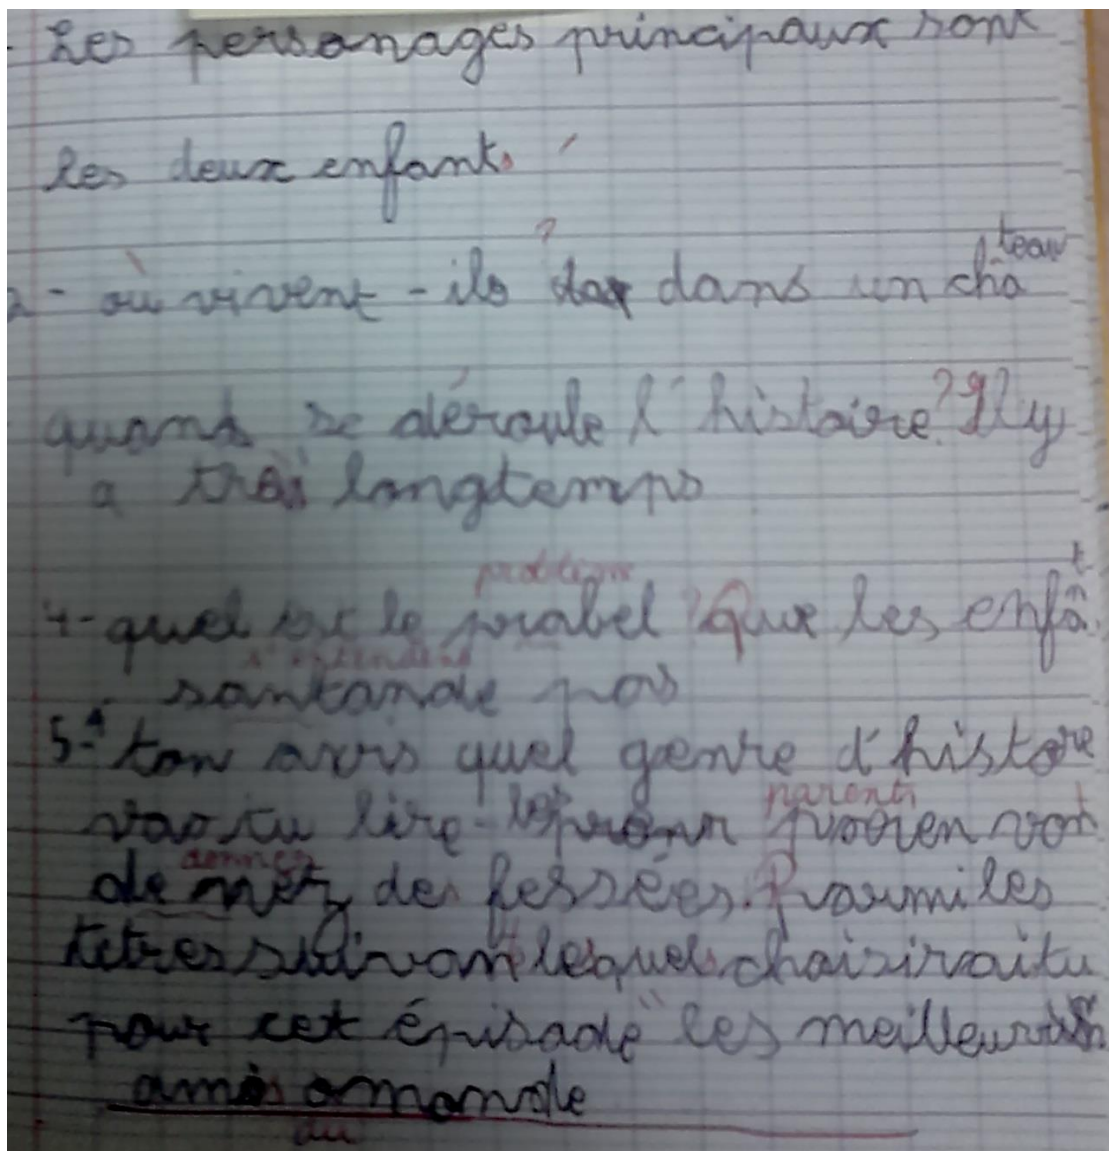 - Les personages principaux sont
les deux enfants.
teau
2- où vivent-ils ? dans un châ
quand se déroule l'histoire? Il y
a très longtemps
problème t
4- quel est le probel ? Que les enfâ
s'entendent
santande pas
5- A ton avis quel genre d'histoire
parents
vas tu lire- les vont
donner
de des fessées. Parmi les
titres suivant lesquels choisiraitu
pour cet épisode "les meilleurs
amis omonde
du